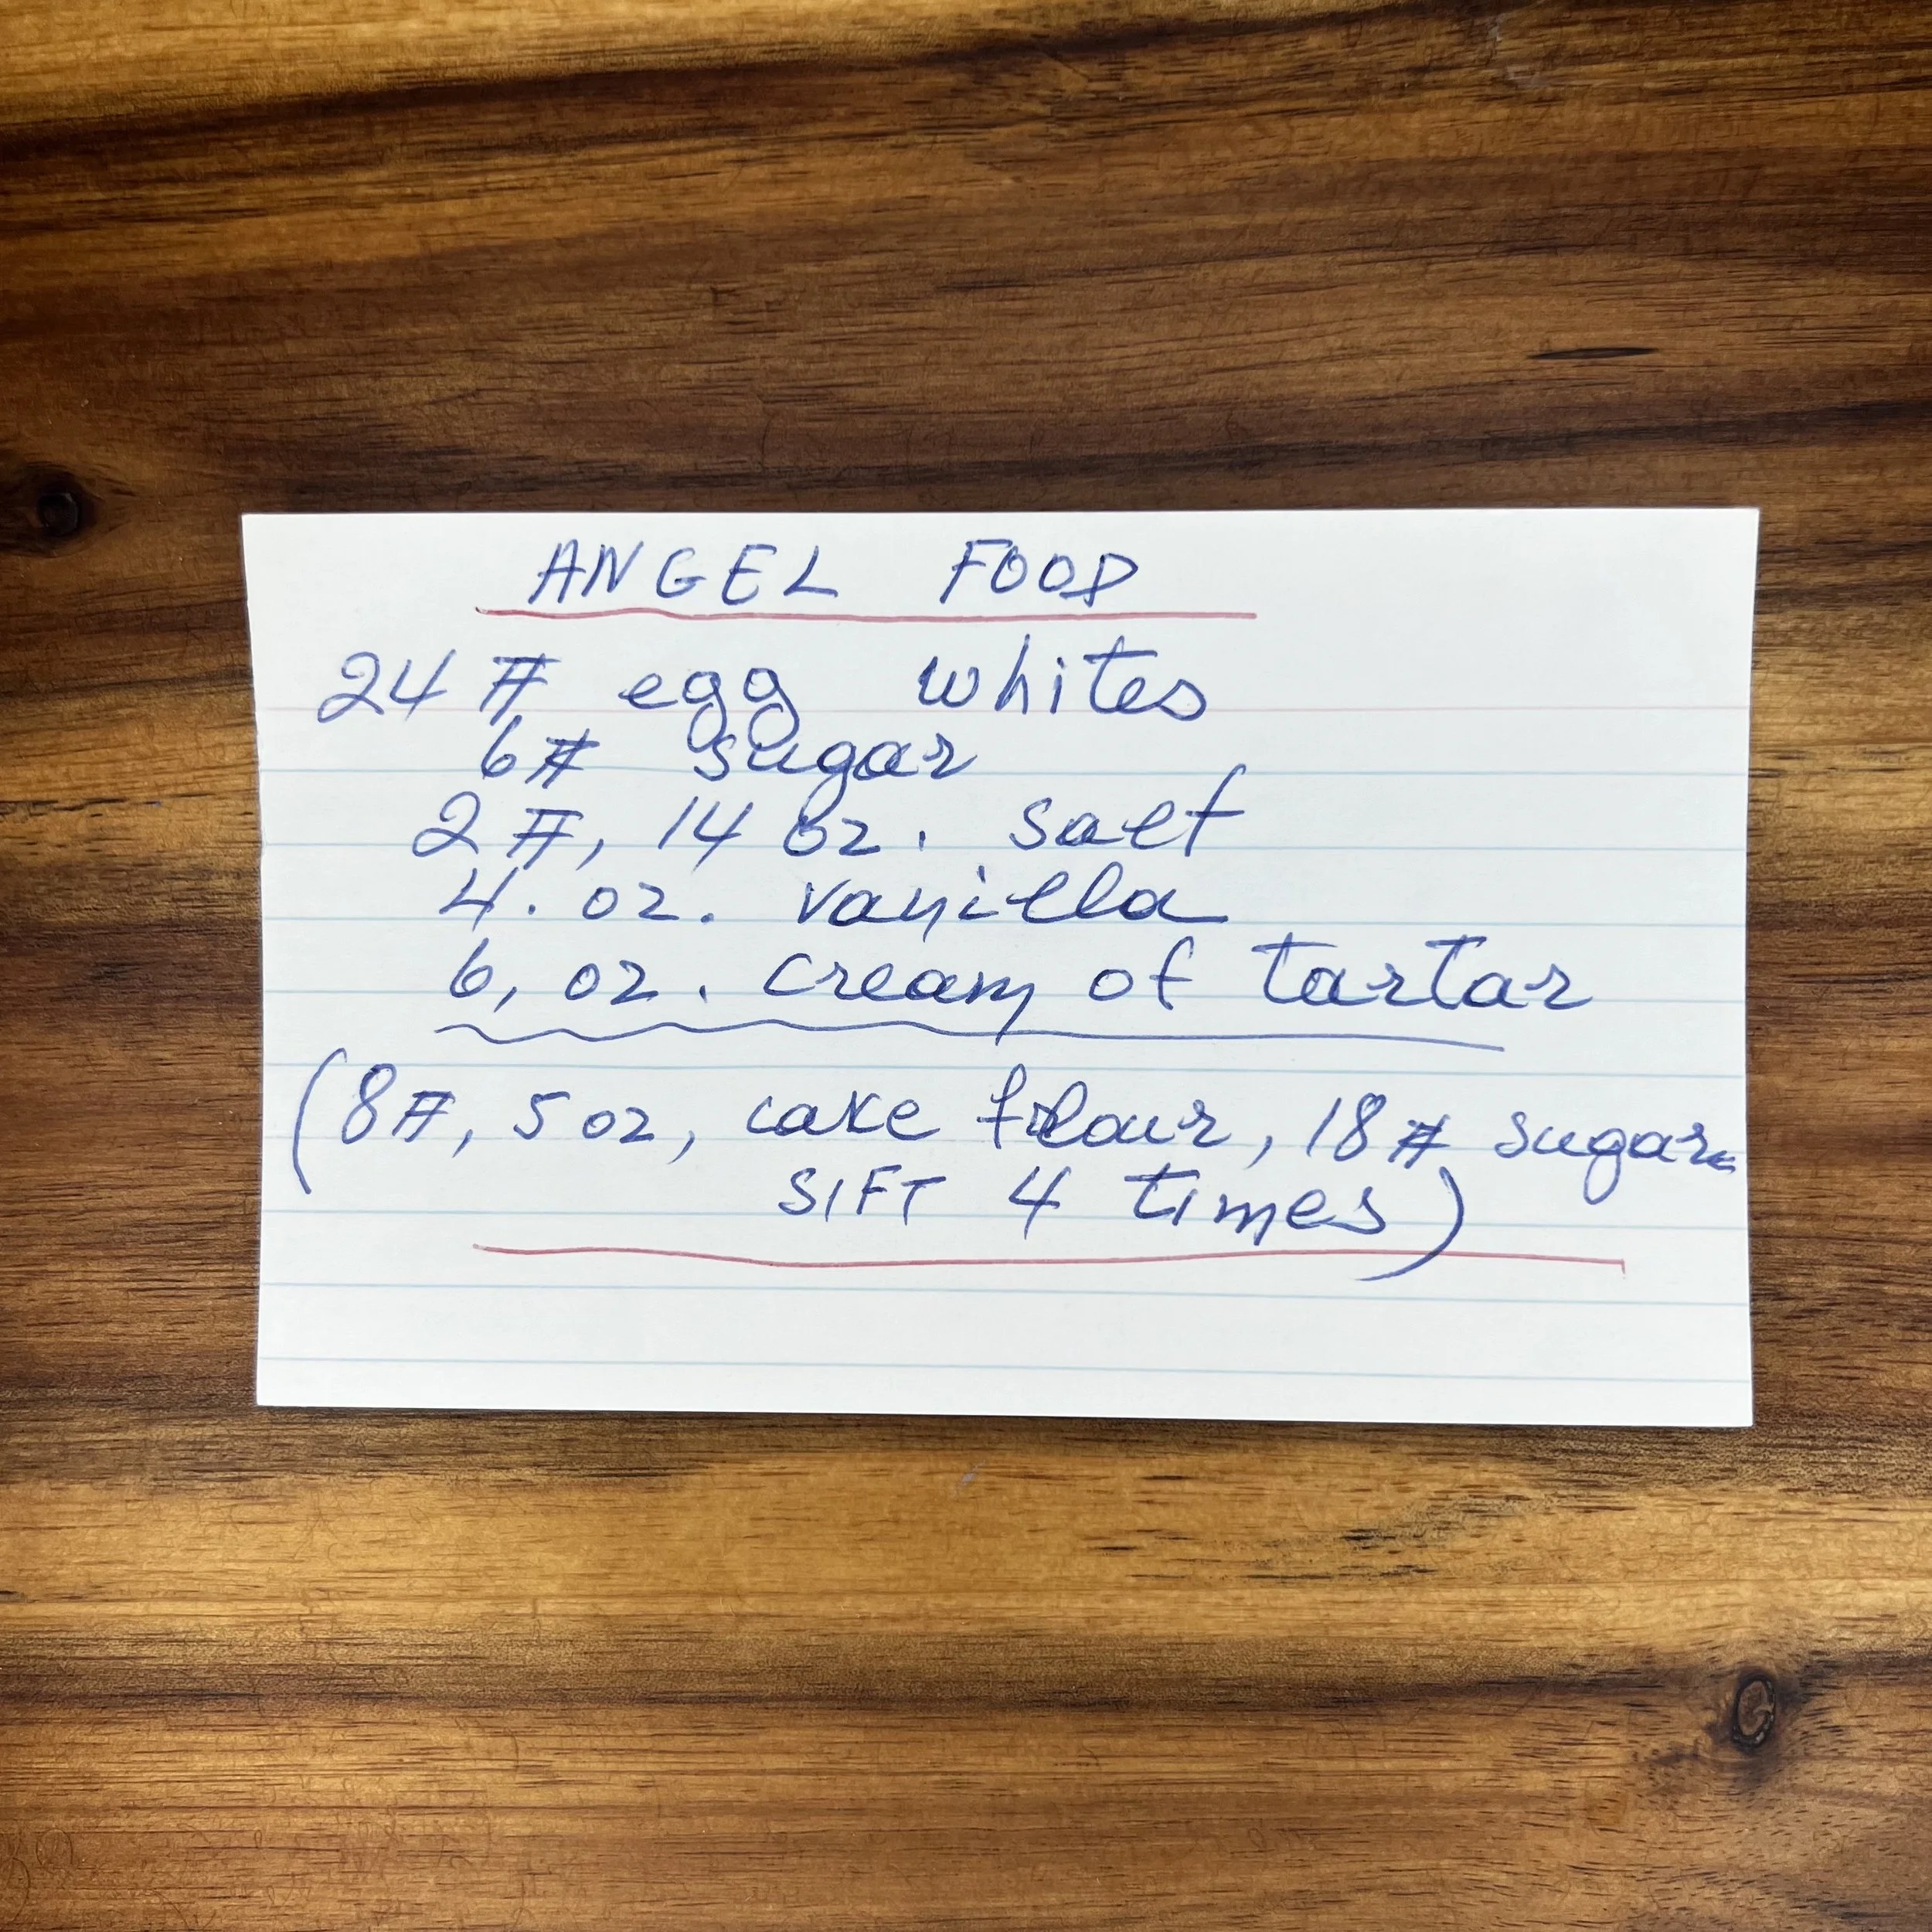 ANGEL FOOD
24 # egg whites
6# sugar
2 #, 14 oz. salt
4. oz. vanilla
6, oz. cream of tartar
(8#, 5 oz, cake flour, 18# sugar.
SIFT 4 times)